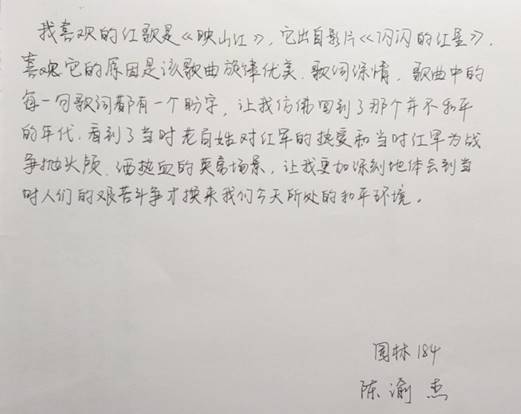 我喜欢的红歌是《映山红》，它出自影片《闪闪的红星》，
喜欢它的原因是该歌曲旋律优美、歌词深情，歌曲中的
每一句歌词都有一个盼字，让我仿佛回到了那个并不和平
的年代，看到了当时老百姓对红军的热爱和当时红军为战
争抛头颅、洒热血的英勇场景，让我更加深刻地体会到当
时人们的艰苦斗争才换来我们今天所处的和平环境。
园林184
陈渝杰